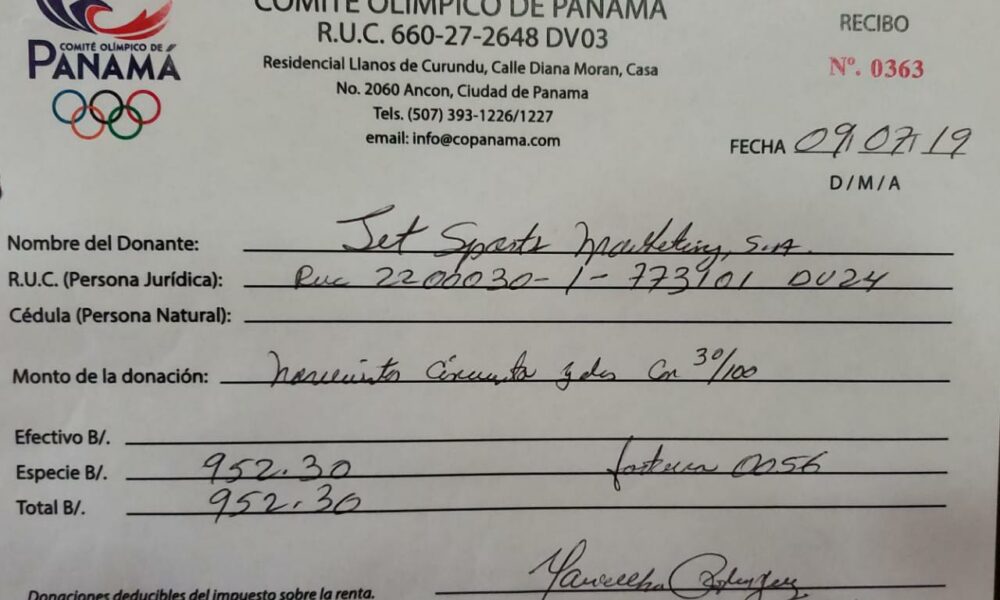 COMITÉ OLÍMPICO DE PANAMÁ
R.U.C. 660-27-2648 DV03
Residencial Llanos de Curundu, Calle Diana Moran, Casa
No. 2060 Ancon, Ciudad de Panama
Tels. (507) 393-1226/1227
email: info@copanama.com
COMITÉ OLÍMPICO DE
PANAMÁ
RECIBO
Nº. 0363
FECHA 09/07/19
D/M/A
Nombre del Donante: Jet Sports Marketing, S.A.
R.U.C. (Persona Jurídica): Ruc 2206030-1-773101 DV24
Cédula (Persona Natural):
Monto de la donación: novecientos cincuenta y dos con 30/100
Efectivo B/.
Especie B/. 952.30 factura 0056
Total B/. 952.30
Donaciones deducibles del impuesto sobre la renta.